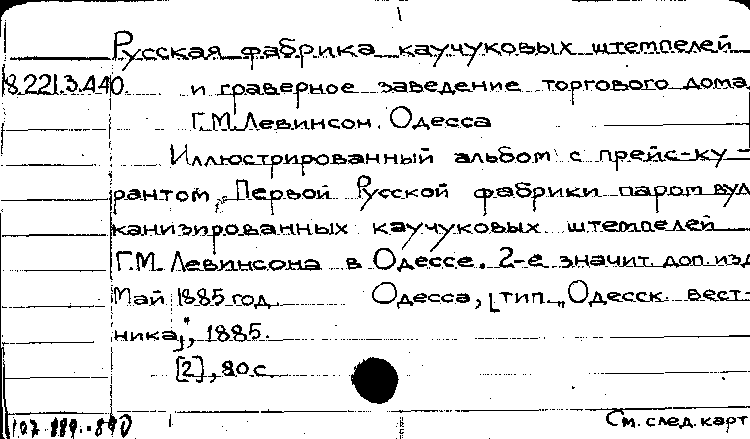 Русская фабрика каучуковых штемпелей
8.2213.А40. и граверное заведение торгового дома
Г.М. Левинсон. Одесса
Иллюстрированный альбом с прейс-ку-
рантом Первой Русской фабрики паром вул
канизированных каучуковых штемпелей
Г.М. Левинсона в Одессе. 2-е значит. доп. изд
Май 1885 год. Одесса, [тип. „Одесск. вест-
ника"], 1885.
[2], 80 с.
См. след. карт